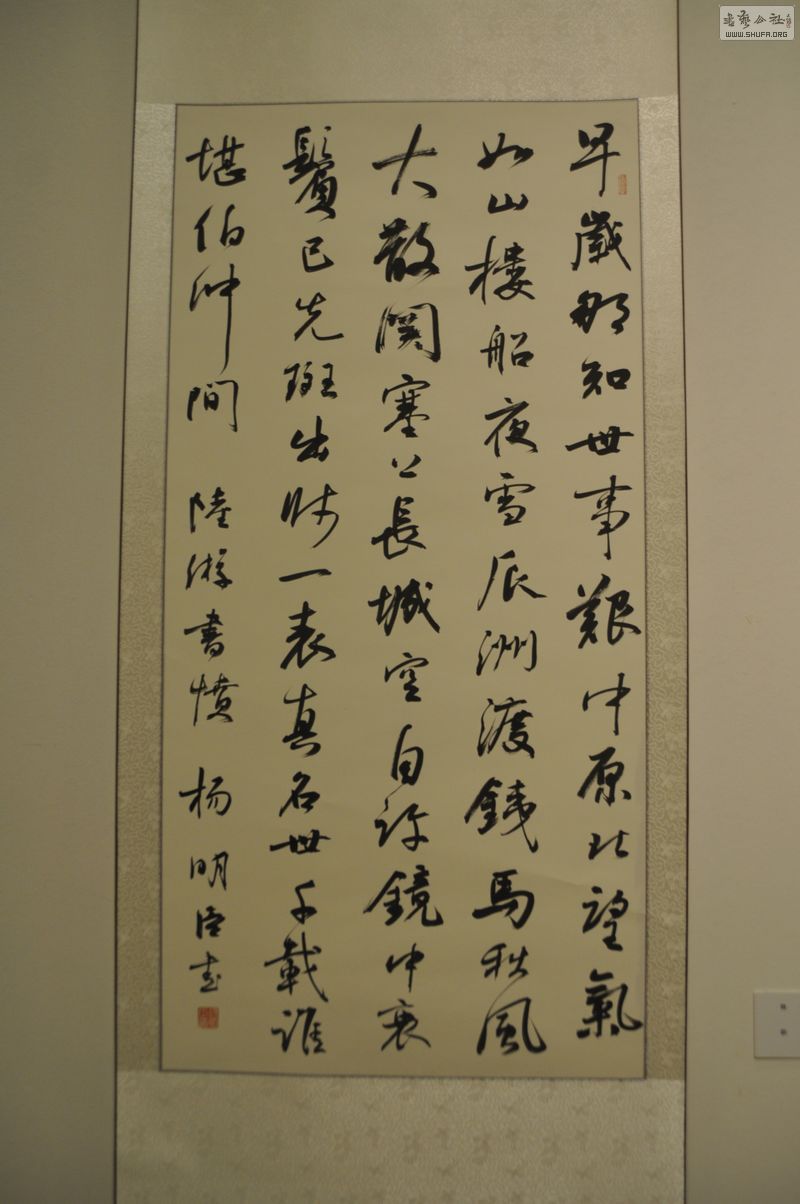 早歲那知世事艱中原北望氣
如山樓船夜雪瓜洲渡鐵馬秋風
大散関塞上長城空自許鏡中衰
鬢已先斑出師一表真名世千載誰
堪伯仲間 陸游書憤 杨明臣書
書藝公社
WWW.SHUFA.ORG